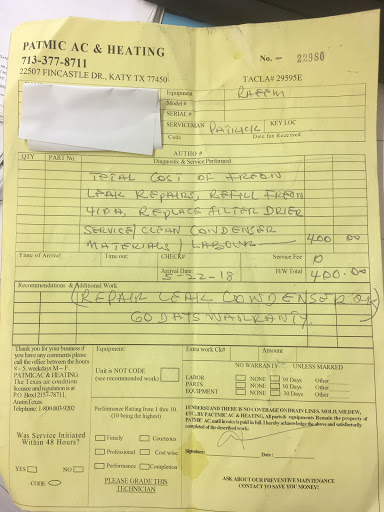 PATMIC AC & HEATING
713-377-8711
22507 FINCASTLE DR., KATY TX 77450
No. 22980
TACLA# 29595E
Equipment RHEEM
Model #
SERIAL #
SERVICEMAN PATRICK KEY LOC
Code Date fax Received
AUTHO #
QTY PART No. Diagnostic & Service Performed
TOTAL COST OF FREON
LEAK REPAIRS, REFILL FREON
410A, REPLACE FILTER DRIER
SERVICE/CLEAN CONDENSER
MATERIALS/LABOUR 400 00
Time of Arrival Time out: CHECK# Service Fee 0
Arrival Date: 5-22-18 H/W Total 400.00
Recommendations & Additional Work
(REPAIR LEAK CONDENSER
60 DAYS WARRANTY.
Thank you for your business if
you have any comments please
call the office between the hours
8 - 5, weekdays M – F
PATMIC AC & HEATING.
The Texas air condition
license and regulation is at
P.O. Box 12157-78711,
Austin Texas.
Telephone: 1-800-803-9202
Equipment:
Unit is NOT CODE
(see recommended work)
Extra work Ck# Amount
NO WARRANTY UNLESS MARKED
LABOR NONE 30 Days Other
PARTS NONE 30 Days Other
EQUIPMENT NONE 30 Days Other
Performance Rating from 1 thru 10.
(10 being the highest)
I UNDERSTAND THERE IS NO COVERAGE ON DRAIN LINES, MOLD, MILDEW,
ETC. BY PATMIC AC & HEATING, All parts & equipments Remain the property of
PATMIC AC, until invoice is paid in full. I hereby acknowledge the above and satisfactorily
completed of the described work:
Was Service Initiated
Within 48 Hours?
YES NO
CODE
Timely Courteous
Professional Cost wise
Performance Completion
PLEASE GRADE THIS
TECHNICIAN
Signature: Date:
ASK ABOUT OUR PREVENTIVE MAINTENANCE
CONTACT TO SAVE YOU MONEY!